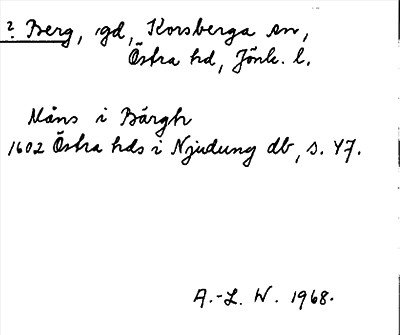 ? Berg, gd, Korsberga sn,
Östra hd, Jönk. l.
Måns i Bärgh
1602 Östra hds i Njudung db, s. 47.
A.-L. W. 1968.